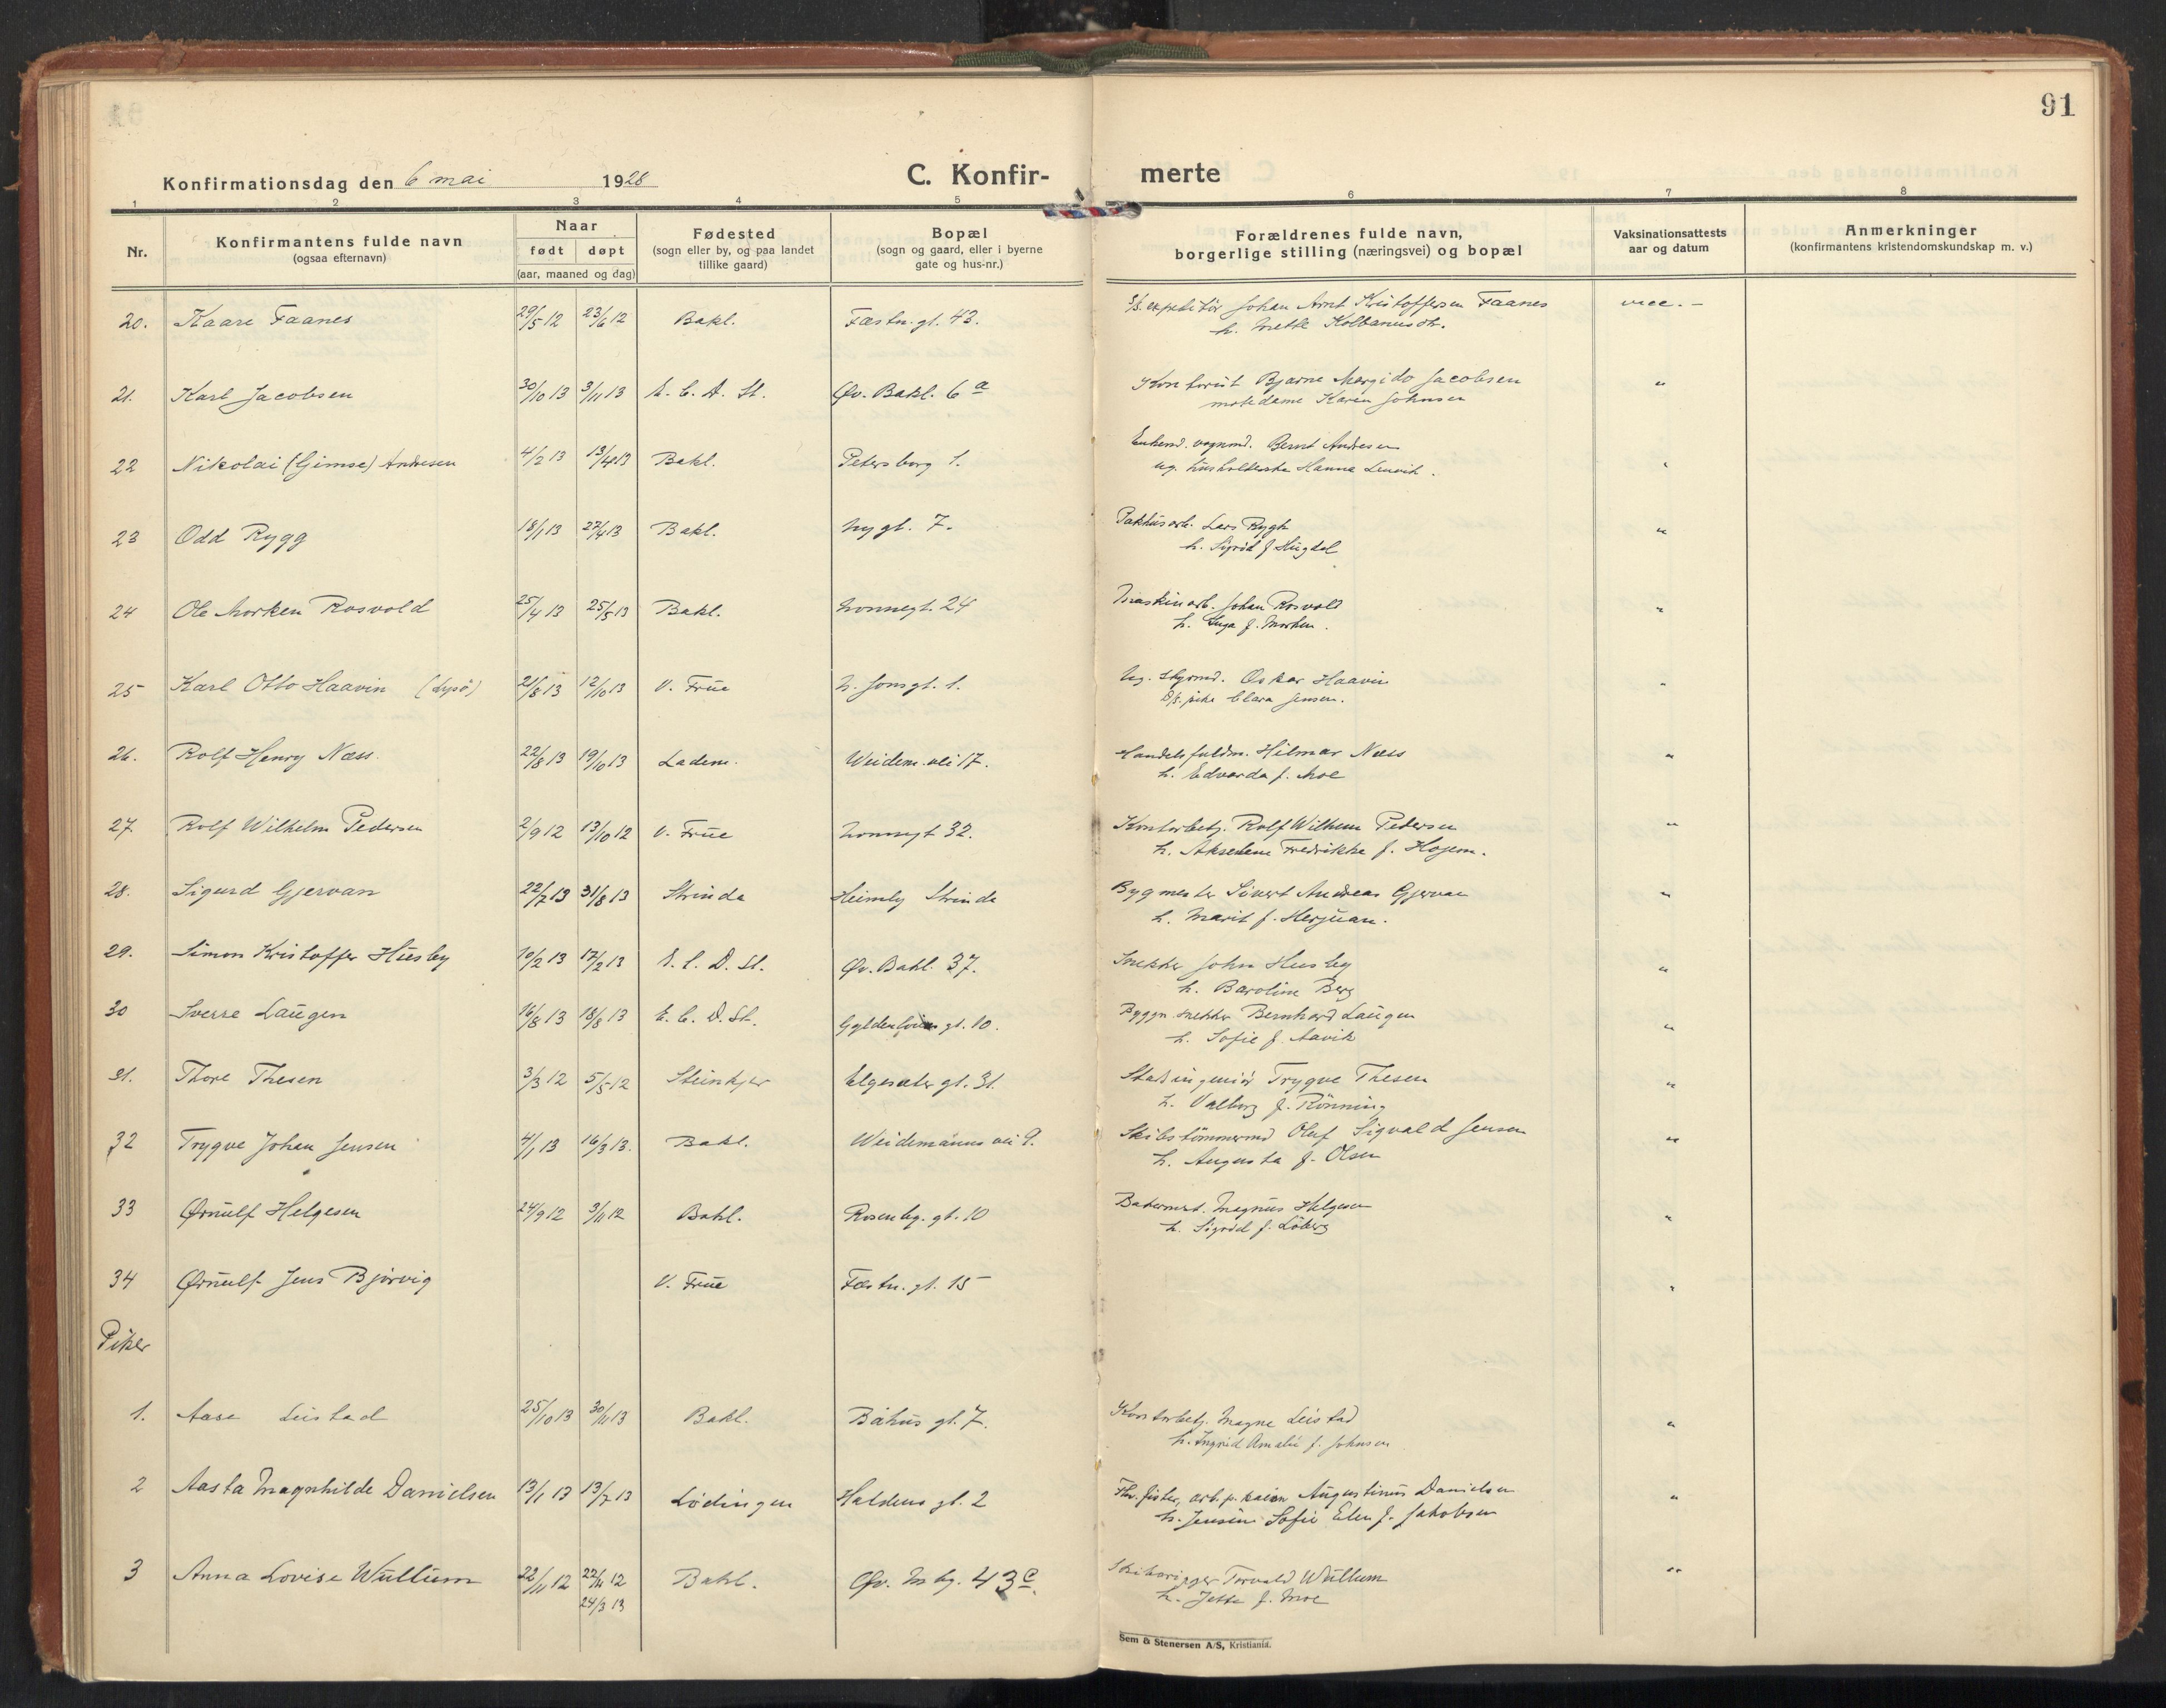 91
Konfirmationsdag den 6 mai 1928
C. Konfir- merte
1 2 3 4 5 6 7 8
Nr.
Konfirmantens fulde navn
(ogsaa efternavn)
Naar
født døpt
(aar, maaned og dag)
Fødested
(sogn eller by, og paa landet
tillike gaard)
Bopæl
(sogn og gaard, eller i byerne
gate og hus-nr.)
Forældrenes fulde navn,
borgerlige stilling (næringsvei) og bopæl
Vaksinationsattests
aar og datum
Anmerkninger
(konfirmantens kristendomskundskap m. v.)
20. Kaare Faanes 29/5 12 23/6 12 Bakl. Fæstn. gt. 43. expeditör Johan Arnt Kristoffersen Faanes vacc. -
h. Mette
21. Karl Jacobsen 30/10 13 3/11 13 E. C. D. St. Øv. Bakl. 6 a Kontorist Bjarne Margido Jacobsen "
motedame Karen Johnsen
22 Nikolai (Gimse) Andresen 4/2 13 13/4 13 Bakl. Petersborg 1. Enkemd. vognmd. Bernt Andresen
ug. husholderske Hanna Leuvik. "
23 Odd Rygg 18/1 13 27/4 13 Bakl. Nygt. 7. Pakhusarb. Lars Rygh "
h. Sigrid f. Hugdal
24 Ole Morken Rosvold 25/4 13 25/5 13 Bakl. Nonnegt. 24 Maskinarb. Johan Rosvold "
h. Inga f. Morken.
25 Karl Otto Haavin (Lysö) 21/8 13 12/10 13 V. Frue N. Jonsgt. 1. Ug. Styrmd. Oskar Haavin "
pike Clara Jensen.
26. Rolf Henry Næss 22/8 13 19/10 13 Ladem. Weidem. vei 17. Handelsfuldm. Hilmar Næss "
h. Edvarda f. Moe
27 Rolf Wilhelm Pedersen 2/9 12 13/10 12 V. Frue Nonnegt 32. Kontorbetj. Rolf Wilhem Pedersen "
h. Akseline Fredrikke f. Hojem.
28. Sigurd Gjervan 22/7 13 31/8 13 Strinda Heimly Strinda Bygmester Sivert Andreas Gjervan "
h. Marit f. Herjuan.
29. Simon Kristoffer Husby 10/2 13 17/2 13 E. C. D. St. Øv. Bakl. 37. Snekker John Husby "
h. Baroline Berg
30 Sverre Laugen 16/8 13 18/8 13 E. C. D. St. Gyldenløves gt. 10. Byggn. snekker Bernhard Laugen "
h. Sofie f. Aavik
31. Thore Thesen 3/3 12 5/5 12 Steinkjer Elgesæter gt. 31. Stadingeniör Trygve Thesen "
h. Valborg f. Rönning
32 Trygve Johan Jensen 4/1 13 16/3 13. Bakl. Weidemanns vei 9. Skibstömmermd Oluf Sigvald Jensen "
h. Augusta f. Olsen
33 Ørnulf Helgesen 24/9 12 3/11 12 Bakl. Rosenbg. gt. 10 Bakermest. Magnus Helgesen "
h. Sigrid f. Löberg
34 Ørnulf Jens Bjørvig V. Frue Fæstn. gt. 15 "
Piker
1. Aase Leistad 25/10 13 30/11 13 Bakl. Båhus gt. 7. Kontorbetj. Magne Leistad "
h. Ingrid Amalie f. Johnsen
2 Aasta Magnhilde Danielsen 13/1 13 13/7 13 Lödingen Haldens gt. 2 Fhv. fisker, arb. p. kaien Augustinus Danielsen "
h. Jensine Sofie Elen f. Jakobsen
3 Anna Lovise Wullum 22/11 12 22/11 12 Bakl. Øv. Mbg. 43 c. Skibsrigger Torvald Wullum "
24/3 13 h. Jette f. Moe
Sem & Stenersen A/S, Kristiania.